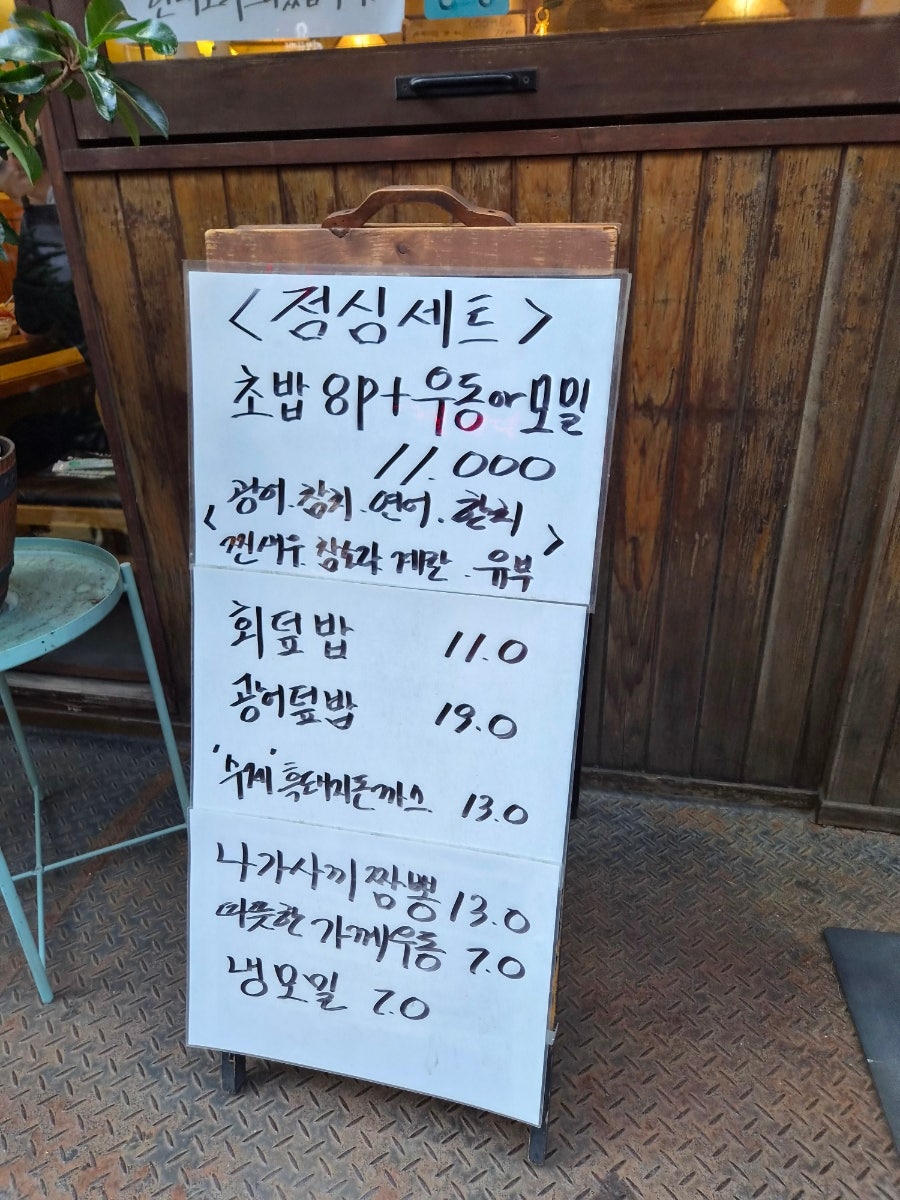 <점심세트>
초밥 8p+우동or모밀
11.000
<광어.참치.연어.한치
찐새우.참소라.계란.유부>
회덮밥 11.0
광어덮밥 19.0
'수제'흑돼지돈까스 13.0
나가사끼짬뽕 13.0
따뜻한가께우동 7.0
냉모밀 7.0